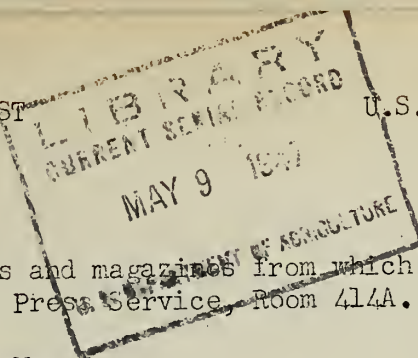 ST
U.S.
LIBRARY
CURRENT SERIAL RECORD
MAY 9
DEPARTMENT OF AGRICULTURE
s and magazines from which
Press Service, Room 414A.